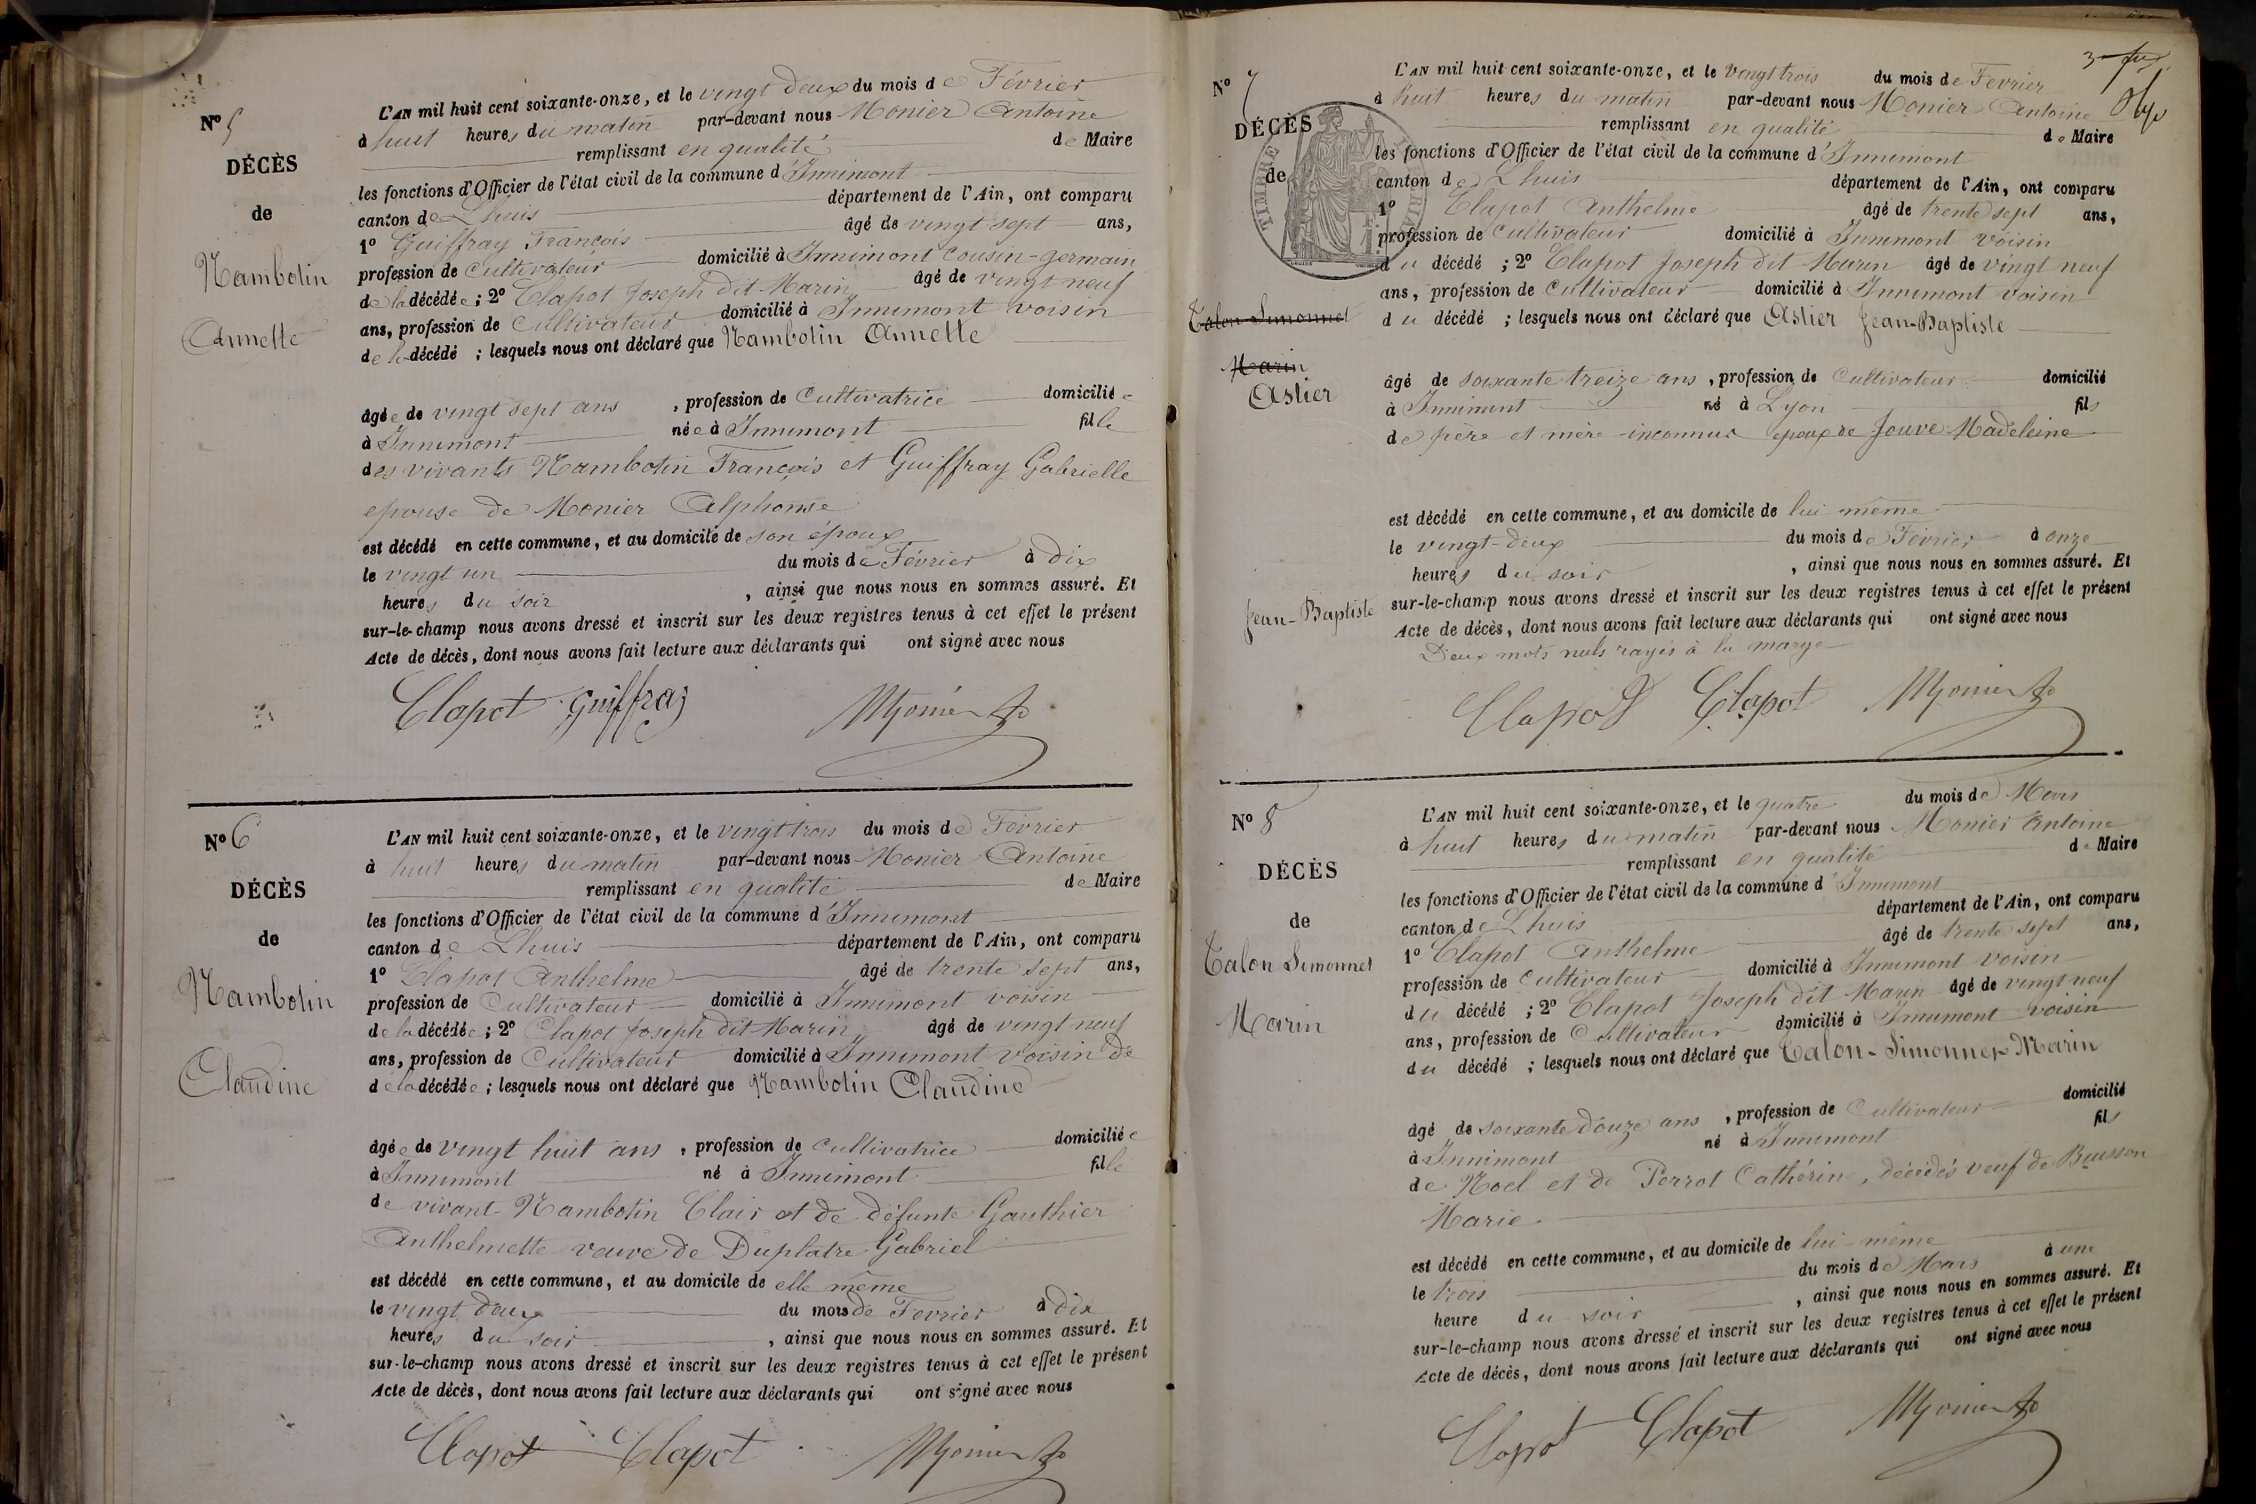 N° 5
DÉCÈS
de
Nambotin
Annette
L'AN mil huit cent soixante-onze, et le vingt deux du mois de Février
à huit heures du matin par-devant nous Monier Antoine
remplissant en qualité de Maire
les fonctions d'Officier de l'état civil de la commune d'Innimont
canton de Lhuis département de l'Ain, ont comparu
1° Guiffray François âgé de vingt sept ans,
profession de Cultivateur domicilié à Innimont cousin-germain
de la décédée ; 2° Clapot Joseph dit Marin âgé de vingt neuf
ans, profession de Cultivateur domicilié à Innimont voisin
de la décédé ; lesquels nous ont déclaré que Nambotin Annette
âgée de vingt sept ans , profession de Cultivatrice domiciliée
à Innimont née à Innimont fille
des vivants Nambotin François et Guiffray Gabrielle
epouse de Monier Alphonse
est décédé en cette commune, et au domicile de son époux
le vingt un du mois de Février à dix
heures du soir , ainsi que nous nous en sommes assuré. Et
sur-le-champ nous avons dressé et inscrit sur les deux registres tenus à cet effet le présent
Acte de décès, dont nous avons fait lecture aux déclarants qui ont signé avec nous
Clapot Guiffray Monier
N° 6
DÉCÈS
de
Nambotin
Claudine
L'AN mil huit cent soixante-onze, et le vingt trois du mois de Février
à huit heures du matin par-devant nous Monier Antoine
remplissant en qualité de Maire
les fonctions d'Officier de l'état civil de la commune d'Innimont
canton de Lhuis département de l'Ain, ont comparu
1° Clapot Anthelme âgé de trente sept ans,
profession de Cultivateur domicilié à Innimont voisin
de la décédée ; 2° Clapot Joseph dit Marin âgé de vingt neuf
ans, profession de Cultivateur domicilié à Innimont voisin de
de la décédée ; lesquels nous ont déclaré que Nambotin Claudine
âgée de vingt huit ans , profession de Cultivatrice domiciliée
à Innimont né à Innimont fille
de vivant Nambotin Clair et de défunte Gauthier
Anthelmette veuve de Duplatre Gabriel
est décédé en cette commune, et au domicile de elle même
le vingt deux du mois de Fevrier à dix
heures du soir , ainsi que nous nous en sommes assuré. Et
sur-le-champ nous avons dressé et inscrit sur les deux registres tenus à cet effet le présent
Acte de décès, dont nous avons fait lecture aux déclarants qui ont signé avec nous
Clapot Clapot Monier
N° 7
DÉCÈS
de
TIMBRE
Talon Simonnet
Marin
Astier
Jean-Baptiste
L'AN mil huit cent soixante-onze, et le vingt trois du mois de Fevrier
à huit heures du matin par-devant nous Monier Antoine
remplissant en qualité de Maire
les fonctions d'Officier de l'état civil de la commune d'Innimont
canton de Lhuis département de l'Ain, ont comparu
1° Clapot Anthelme âgé de trente sept ans,
profession de Cultivateur domicilié à Innimont voisin
du décédé ; 2° Clapot Joseph dit Marin âgé de vingt neuf
ans, profession de Cultivateur domicilié à Innimont voisin
du décédé ; lesquels nous ont déclaré que Astier Jean-Baptiste
âgé de soixante treize ans , profession de Cultivateur domicilié
à Innimont né à Lyon fils
de père et mère inconnus epoux de Jouve Madeleine
est décédé en cette commune, et au domicile de lui même
le vingt-deux du mois de Février à onze
heures du soir , ainsi que nous nous en sommes assuré. Et
sur-le-champ nous avons dressé et inscrit sur les deux registres tenus à cet effet le présent
Acte de décès, dont nous avons fait lecture aux déclarants qui ont signé avec nous
Deux mots nuls rayés à la marge
Clapot Clapot Monier
N° 8
DÉCÈS
de
Talon Simonnet
Marin
L'AN mil huit cent soixante-onze, et le quatre du mois de Mars
à huit heures du matin par-devant nous Monier Antoine
remplissant en qualité de Maire
les fonctions d'Officier de l'état civil de la commune d'Innimont
canton de Lhuis département de l'Ain, ont comparu
1° Clapot Anthelme âgé de trente sept ans,
profession de Cultivateur domicilié à Innimont voisin
du décédé ; 2° Clapot Joseph dit Marin âgé de vingt neuf
ans, profession de Cultivateur domicilié à Innimont voisin
du décédé ; lesquels nous ont déclaré que Talon-Simonnet Marin
âgé de soixante douze ans , profession de Cultivateur domicilié
à Innimont né à Innimont fils
de Noel et de Perrot Cathérine, décédés veuf de Buisson
Marie
est décédé en cette commune, et au domicile de lui-même
le trois du mois de Mars à une
heure du soir , ainsi que nous nous en sommes assuré. Et
sur-le-champ nous avons dressé et inscrit sur les deux registres tenus à cet effet le présent
Acte de décès, dont nous avons fait lecture aux déclarants qui ont signé avec nous
Clapot Clapot Monier